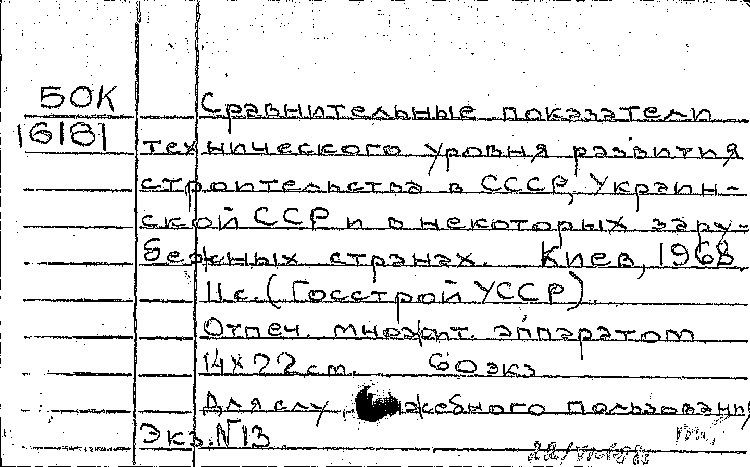 50К
16181
Сравнительные показатели
технического уровня развития
строительства в СССР, Украин-
ской ССР и в некоторых зару-
бежных странах. Киев, 1968
11с. (Госстрой УССР).
Отпеч. множит. аппаратом
14×22 см. 60 экз
Для служебного пользовани
Экз. №13